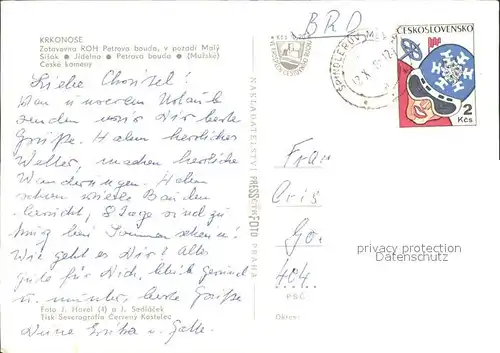 KRKONOŠE
Zotavovna ROH Petrova bouda, v pozadí Malý
Šišák ● Jídelna ● Petrova bouda ● (Mužské)
České kameny
Liebe
Von unserem Urlaub
senden wir Dir beste
Grüße. Haben herrliches
Wetter, machen herrliche
Wanderungen. Haben
schon viele Bauden
besucht, 8 Tage sind zu
wenig bei Sonnenschein!
Wie geht es Dir? Alles
gute für Dich, bleib gesund
u. munter, beste Grüße
Foto J. Havel (4) a J. Sedláček
Tisk Severografia Červený Kostelec
Deine Erika u.
NAKLADATELSTVÍ PRESSFOTO PRAHA
BRD
Kčs
ČESKOSLOVENSKO
2
Kčs
ŠPINDLERŮV MLÝN
Frau
Cris
404
privacy protection
watermark
PSČ
Okres: